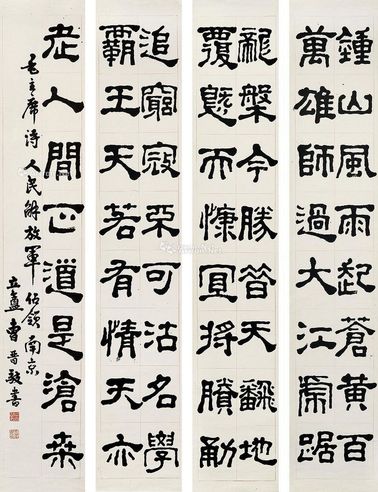 鍾山風雨起蒼黃百
萬雄師過大江虎踞
龍槃今勝昔天飜地
覆慨而慷宜將賸勇
追窮寇不可沽名學
霸王天若有情天亦
老人間正道是滄桑
毛主席詩人民解放軍佔領南京
盦曹晋書